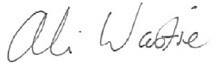 Ali Wastie